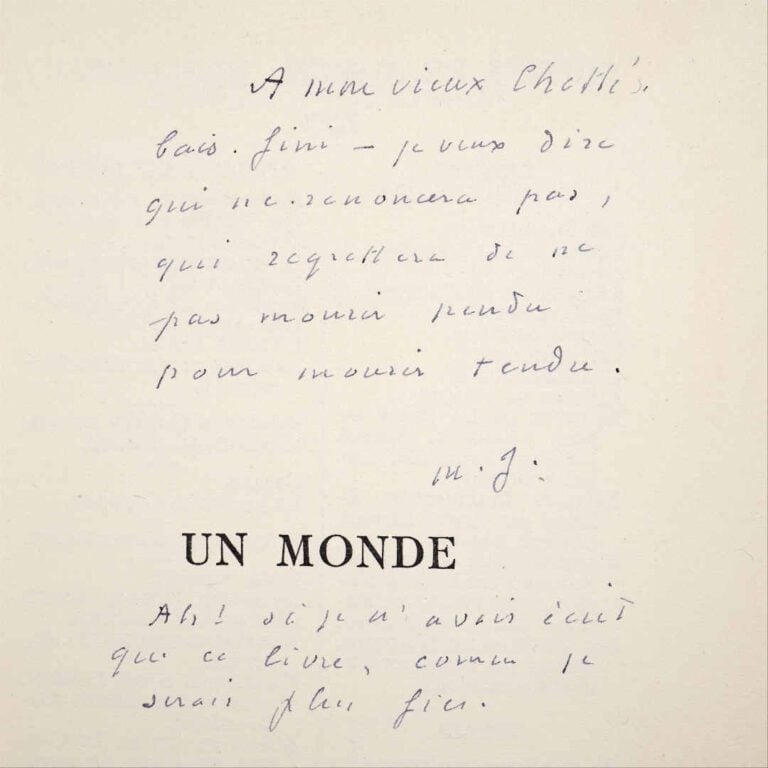 A mon vieux
bais. fini — je veux dire
qui ne renoncera pas,
qui regrettera de ne
pas mourir pendu
pour mourir tendu.
M. J.
UN MONDE
Ah! si je n'avais écrit
que ce livre, comme je
serais plus fier.